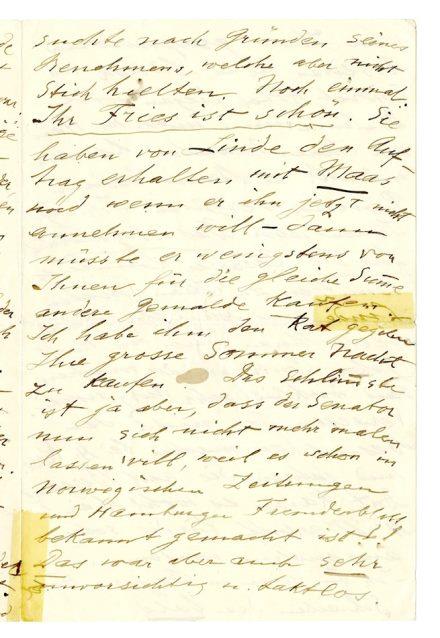 suchte nach Gründen seines
Benehmens, welche aber nicht
Stich hielten. Noch einmal
Ihr Fries ist schön. Sie
haben von Linde den Auf-
trag erhalten mit Maas
und wenn er ihn jetzt nicht
annehmen will – dann
müsste er wenigstens von
Ihnen für die gleiche Sume
andere Gemälde kaufen.
Ich habe ihm den Rat gegeben
Ihre grosse Sommer Nacht
zu kaufen. Das schlimste
ist ja aber, dass der Senator
nun sich nicht mehr malen
lassen will, weil es schon in
Norwigischen Zeitungen
und Hamburger Fremdenblatt
bekannt gemacht ist!!
Das war aber auch sehr
unvorsichtig u. taktlos.